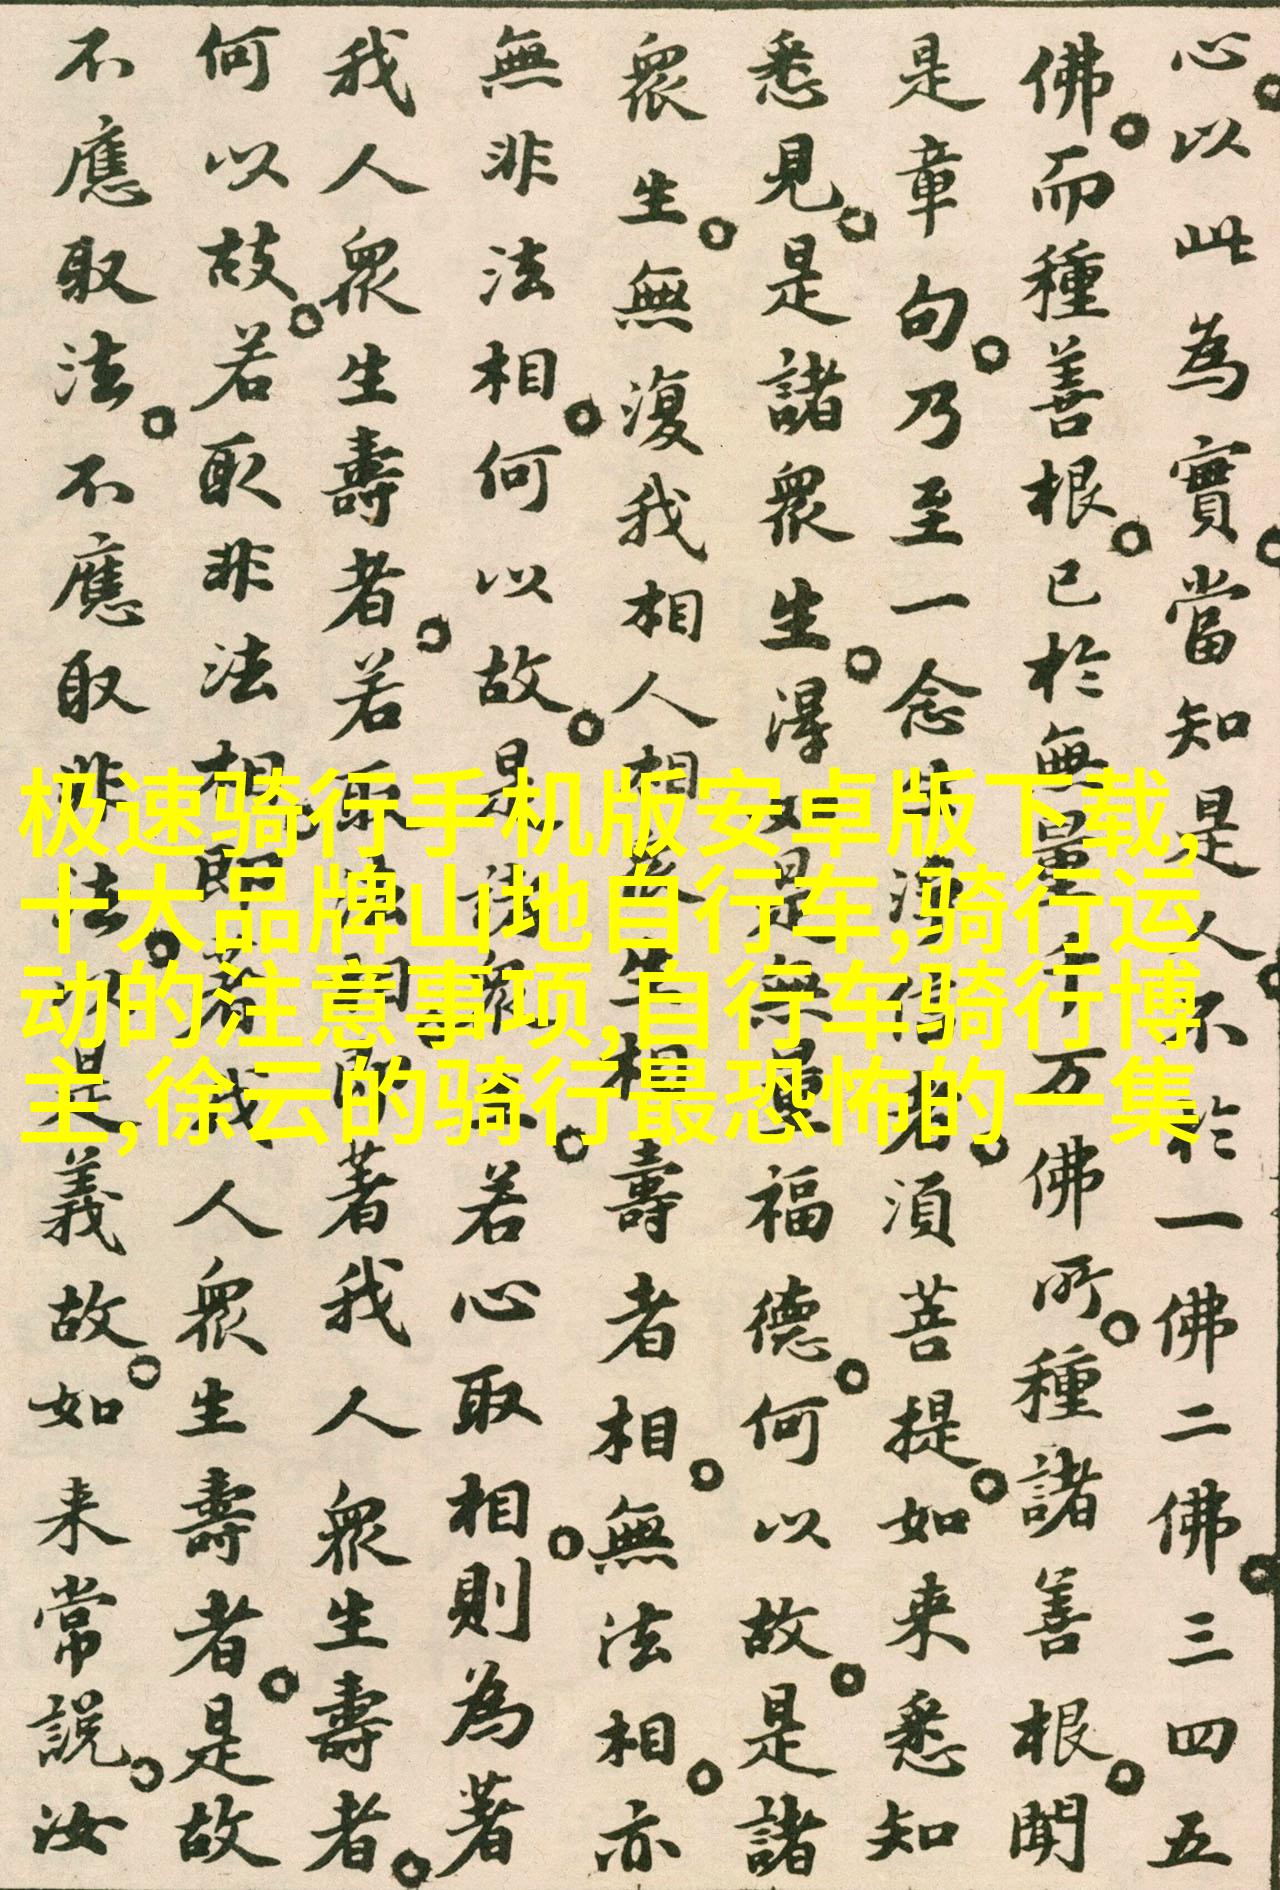 心。以此為實。當知是人。不於一佛二佛。三四五
佛。而種善根。已於無量千万佛所。種諸善根。聞
是章句。乃至一念生淨信者。須菩提。如来悉知
悉見。是諸衆生。得如是無量福德。何以故。是諸
衆生。無復我相人相衆生相壽者相。無法相。亦
無非法相。何以故。是諸衆生。若心取相。則為著
我人衆生壽者。若取法相。即著我人衆生壽者。
何以故。若取非法相。即著我人衆生壽者。是故
不應取法。不應取非法。以是義故。如来常說。汝
极速骑行手机版安卓版下载,
十大品牌山地自行车,骑行运
动的注意事项,自行车骑行博
主,徐云的骑行最恐怖的一集